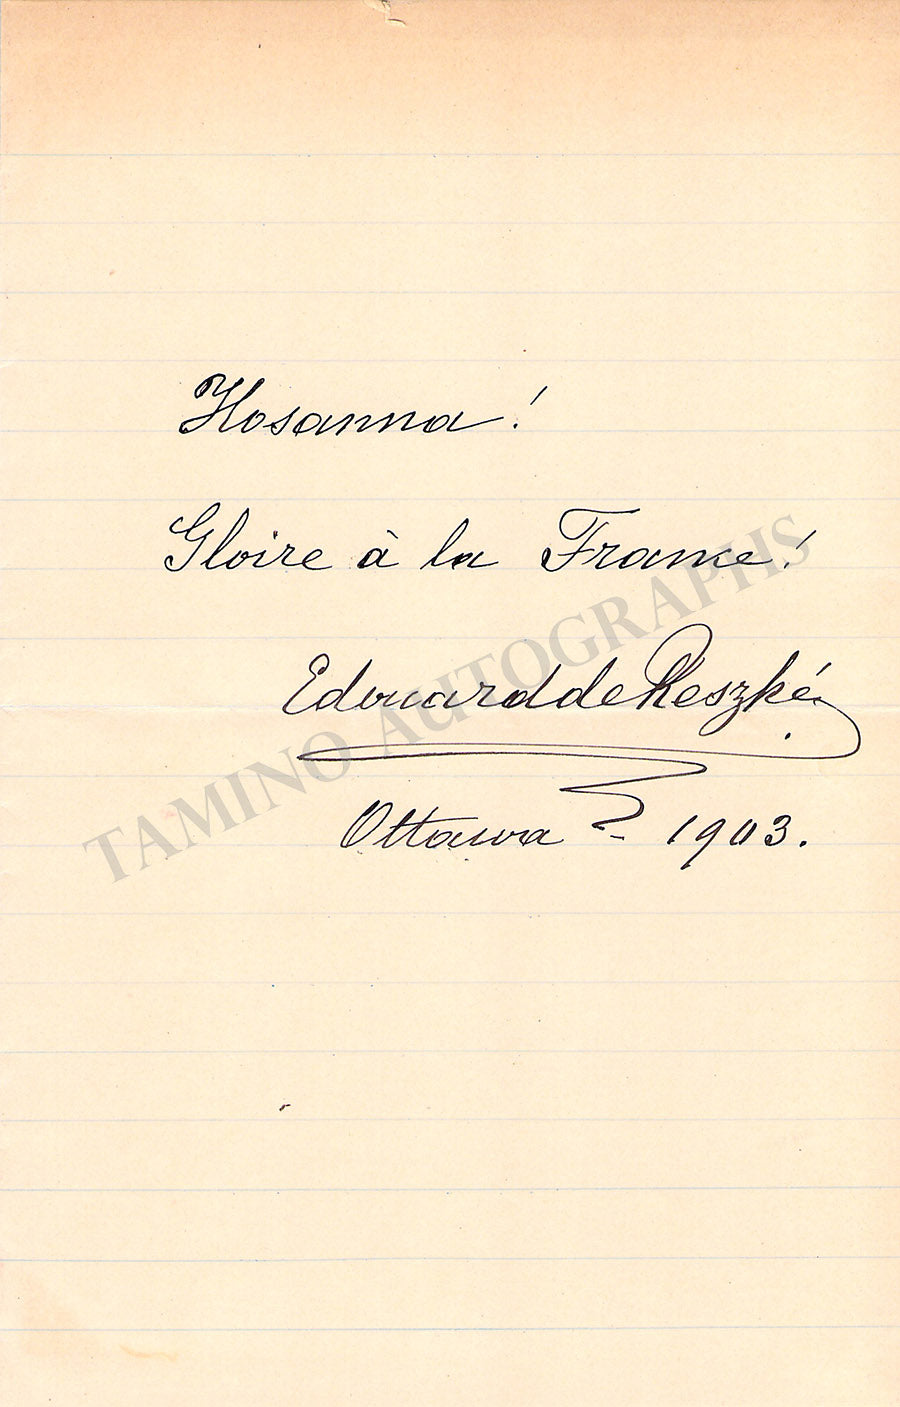 Hosanna!
Gloire à la France!
Edouard de Reszké
Ottawa - 1903.
TAMINO AUTOGRAPHS